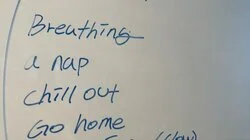 Breathing
a nap
chill out
Go home